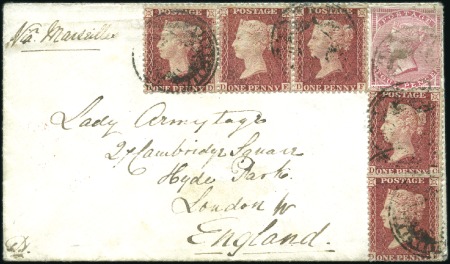 Via Marseilles
POSTAGE POSTAGE POSTAGE POSTAGE
ONE PENNY ONE PENNY ONE PENNY
Lady Armytage
27 Cambridge Square
Hyde Park
London W
England.
POSTAGE
ONE PENNY
POSTAGE
ONE PENNY